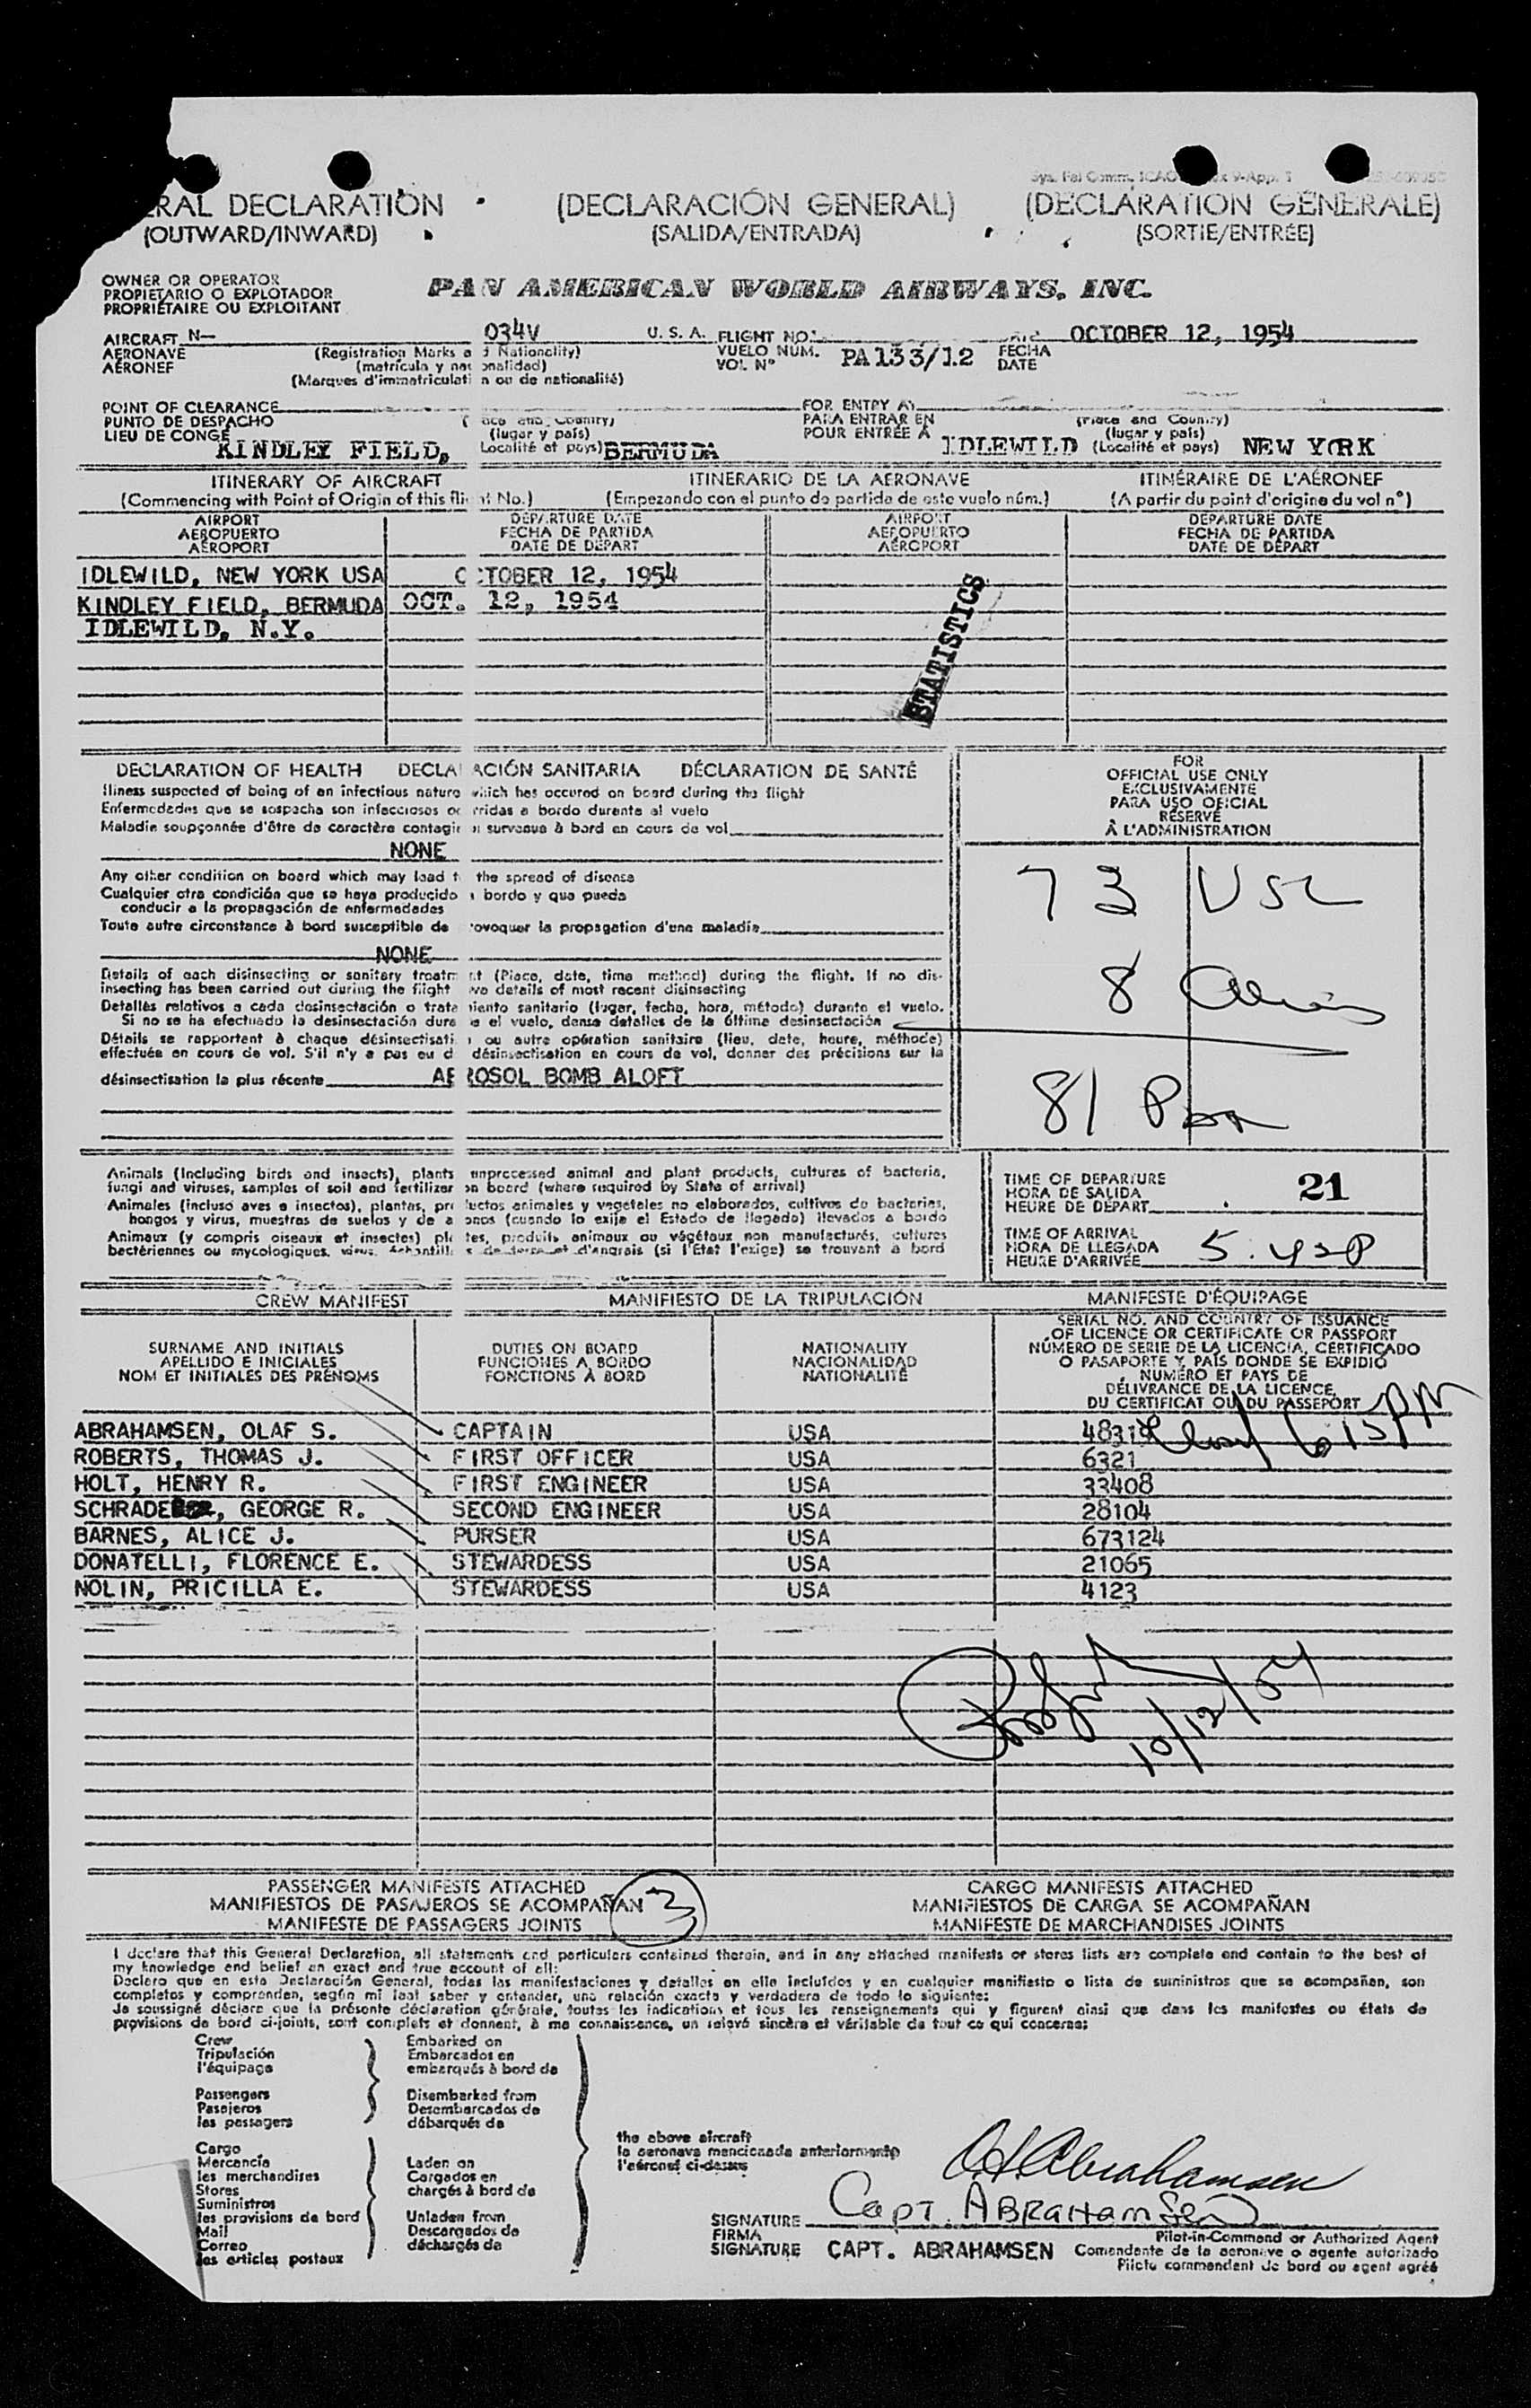 Sys. Fel Comm, ICAO
ERAL DECLARATION (DECLARACIÓN GENERAL) (DECLARATION GÉNÉRALE)
(OUTWARD/INWARD) (SALIDA/ENTRADA) (SORTIE/ENTRÉE)
OWNER OR OPERATOR
PROPIETARIO O EXPLOTADOR
PROPRIÉTAIRE OU EXPLOITANT
PAN AMERICAN WORLD AIRWAYS, INC.
AIRCRAFT N— 034V U. S. A. FLIGHT NO. OCTOBER 12, 1954
AERONAVE (Registration Marks a d Nationality) VUELO NUM. PA 133/12 FECHA
AÉRONEF (matrícula y nac onalidad) VOL N° DATE
(Marques d'immatriculati n ou de nationalité)
POINT OF CLEARANCE FOR ENTRY AT
PUNTO DE DESPACHO (lugar y país) PARA ENTRAR EN (Place and Country)
LIEU DE CONGÉ POUR ENTRÉE À (lugar y país)
KINDLEY FIELD, Localité et pays) BERMUDA IDLEWILD (Localité et pays) NEW YORK
ITINERARY OF AIRCRAFT ITINERARIO DE LA AERONAVE ITINÉRAIRE DE L'AÉRONEF
(Commencing with Point of Origin of this fli t No.) (Empezando con el punto de partida de este vuelo núm.) (A partir du point d'origine du vol n°)
AIRPORT DEPARTURE DATE AIRPORT DEPARTURE DATE
AEROPUERTO FECHA DE PARTIDA AEROPUERTO FECHA DE PARTIDA
AÉROPORT DATE DE DÉPART AÉROPORT DATE DE DÉPART
IDLEWILD, NEW YORK USA OCTOBER 12, 1954
KINDLEY FIELD, BERMUDA OCT. 12, 1954
IDLEWILD, N.Y.
STATISTICS
DECLARATION OF HEALTH DECLA ACIÓN SANITARIA DÉCLARATION DE SANTÉ
Illness suspected of being of an infectious nature which has occured on board during the flight
Enfermedades que se sospecha son infecciosas oc rridas a bordo durante el vuelo
Maladie soupçonnée d'être de caractère contagie x survenue à bord en cours de vol
NONE
Any other condition on board which may lead t the spread of disease
Cualquier otra condición que se haya producido a bordo y que pueda
conducir a la propagación de enfermedades
Toute autre circonstance à bord susceptible de rovoquer la propagation d'une maladie
NONE
Details of each disinsecting or sanitary treatm nt (Place, date, time method) during the flight. If no dis-
insecting has been carried out during the flight ve details of most recent disinsecting
Detalles relativos a cada desinsectación o trata niento sanitario (lugar, fecha, hora, método) durante el vuelo.
Si no se ha efectuado la desinsectación dura e el vuelo, dense detalles de la última desinsectación
Détails se rapportent à chaque désinsectisati ou autre opération sanitaire (lieu, date, heure, méthode)
effectuée en cours de vol. S'il n'y a pas eu d désinsectisation en cours de vol, donner des précisions sur la
désinsectisation la plus récente AEROSOL BOMB ALOFT
FOR
OFFICIAL USE ONLY
EXCLUSIVAMENTE
PARA USO OFICIAL
RÉSERVÉ
À L'ADMINISTRATION
73 USC
8
81
Animals (Including birds and insects), plants unprocessed animal and plant products, cultures of bacteria,
fungi and viruses, samples of soil and fertilizer on board (where required by State of arrival)
Animales (incluso aves e insectos), plantas, pro luctos animales y vegetales no elaborados, cultivos de bacterias,
hongos y virus, muestras de suelos y de a onos (cuando lo exija el Estado de llegada) llevados a bordo
Animaux (y compris oiseaux et insectes) pla tes, produits animaux ou végétaux non manufacturés, cultures
bactériennes ou mycologiques, virus, échantill s de terre et d'engrais (si l'Etat l'exige) se trouvant à bord
TIME OF DEPARTURE
HORA DE SALIDA 21
HEURE DE DÉPART
TIME OF ARRIVAL
HORA DE LLEGADA 5:42P
HEURE D'ARRIVÉE
CREW MANIFEST MANIFIESTO DE LA TRIPULACIÓN MANIFESTE D'ÉQUIPAGE
SURNAME AND INITIALS
APELLIDO E INICIALES
NOM ET INITIALES DES PRÉNOMS
DUTIES ON BOARD
FUNCIONES A BORDO
FONCTIONS À BORD
NATIONALITY
NACIONALIDAD
NATIONALITÉ
SERIAL NO. AND COUNTRY OF ISSUANCE
OF LICENCE OR CERTIFICATE OR PASSPORT
NÚMERO DE SERIE DE LA LICENCIA, CERTIFICADO
O PASAPORTE Y PAÍS DONDE SE EXPIDIÓ
NUMÉRO ET PAYS DE
DÉLIVRANCE DE LA LICENCE,
DU CERTIFICAT OU DU PASSEPORT
ABRAHAMSEN, OLAF S. CAPTAIN USA 6:15 PM
ROBERTS, THOMAS J. FIRST OFFICER USA 6321
HOLT, HENRY R. FIRST ENGINEER USA 33408
SCHRADE, GEORGE R. SECOND ENGINEER USA 28104
BARNES, ALICE J. PURSER USA 673124
DONATELLI, FLORENCE E. STEWARDESS USA 21065
NOLIN, PRICILLA E. STEWARDESS USA 4123
10/12/54
PASSENGER MANIFESTS ATTACHED CARGO MANIFESTS ATTACHED
MANIFIESTOS DE PASAJEROS SE ACOMPAÑAN 3 MANIFIESTOS DE CARGA SE ACOMPAÑAN
MANIFESTE DE PASSAGERS JOINTS MANIFESTE DE MARCHANDISES JOINTS
I declare that this General Declaration, all statements and particulars contained therein, and in any attached manifests or stores lists are complete and contain to the best of
my knowledge and belief an exact and true account of all:
Declaro que en esta Declaración General, todas las manifestaciones y detalles en ella incluídos y en cualquier manifiesto o lista de suministros que se acompañan, son
completos y comprenden, según mi leal saber y entender, una relación exacta y verdadera de todo lo siguiente:
Je soussigné déclare que la présente déclaration générale, toutes les indications et tous les renseignements qui y figurent ainsi que dans les manifestes ou états de
provisions de bord ci-joints, sont complets et donnent, à ma connaissance, un relevé sincère et véritable de tout ce qui concerne:
Crew Embarked on
Tripulación Embarcados en
l'équipage embarqués à bord de
Passengers Disembarked from
Pasajeros Desembarcados de
les passagers débarqués de
Cargo
Mercancía Laden on
les merchandises Cargados en
Stores chargés à bord de
Suministros
les provisions de bord Unladen from
Mail Descargados de
Correo déchargés de
les articles postaux
the above aircraft
la aeronave mencionada anteriormente
l'aéronef ci-dessus
O.S. Abrahamsen
SIGNATURE Capt. ABRAHAMSEN
FIRMA Pilot-in-Command or Authorized Agent
SIGNATURE CAPT. ABRAHAMSEN Comandante de la aeronave o agente autorizado
Pilote commandant de bord ou agent agréé